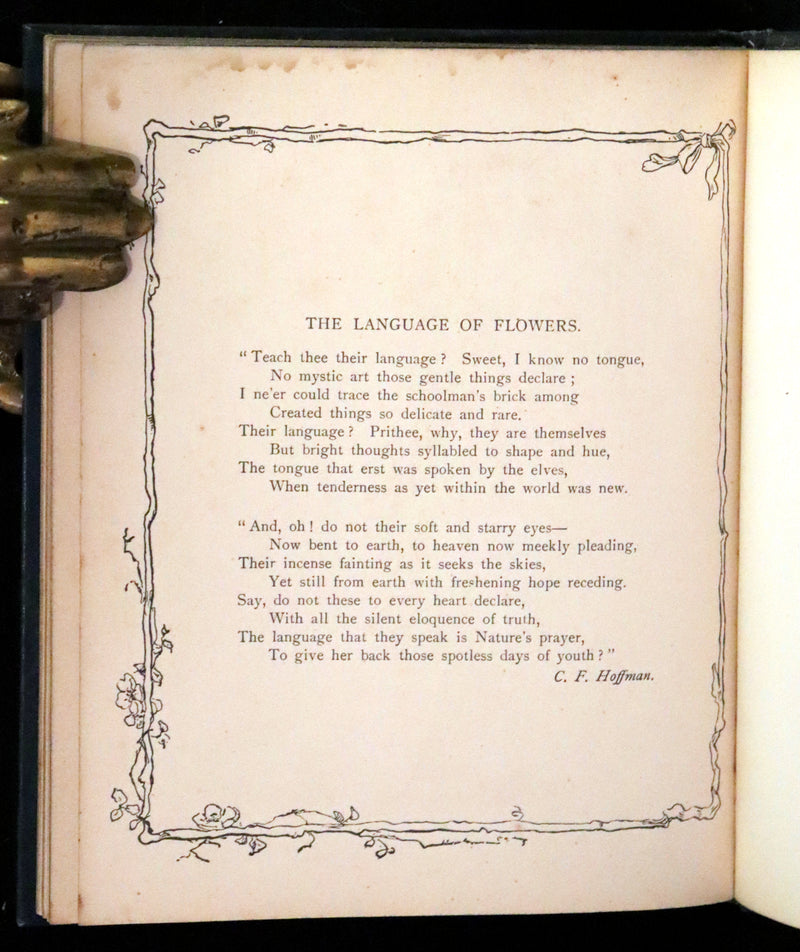 THE LANGUAGE OF FLOWERS.
“ Teach thee their language ? Sweet, I know no tongue,
No mystic art those gentle things declare ;
I ne'er could trace the schoolman's brick among
Created things so delicate and rare.
Their language ? Prithee, why, they are themselves
But bright thoughts syllabled to shape and hue,
The tongue that erst was spoken by the elves,
When tenderness as yet within the world was new.
“ And, oh ! do not their soft and starry eyes—
Now bent to earth, to heaven now meekly pleading,
Their incense fainting as it seeks the skies,
Yet still from earth with freshening hope receding.
Say, do not these to every heart declare,
With all the silent eloquence of truth,
The language that they speak is Nature's prayer,
To give her back those spotless days of youth ? ”
C. F. Hoffman.